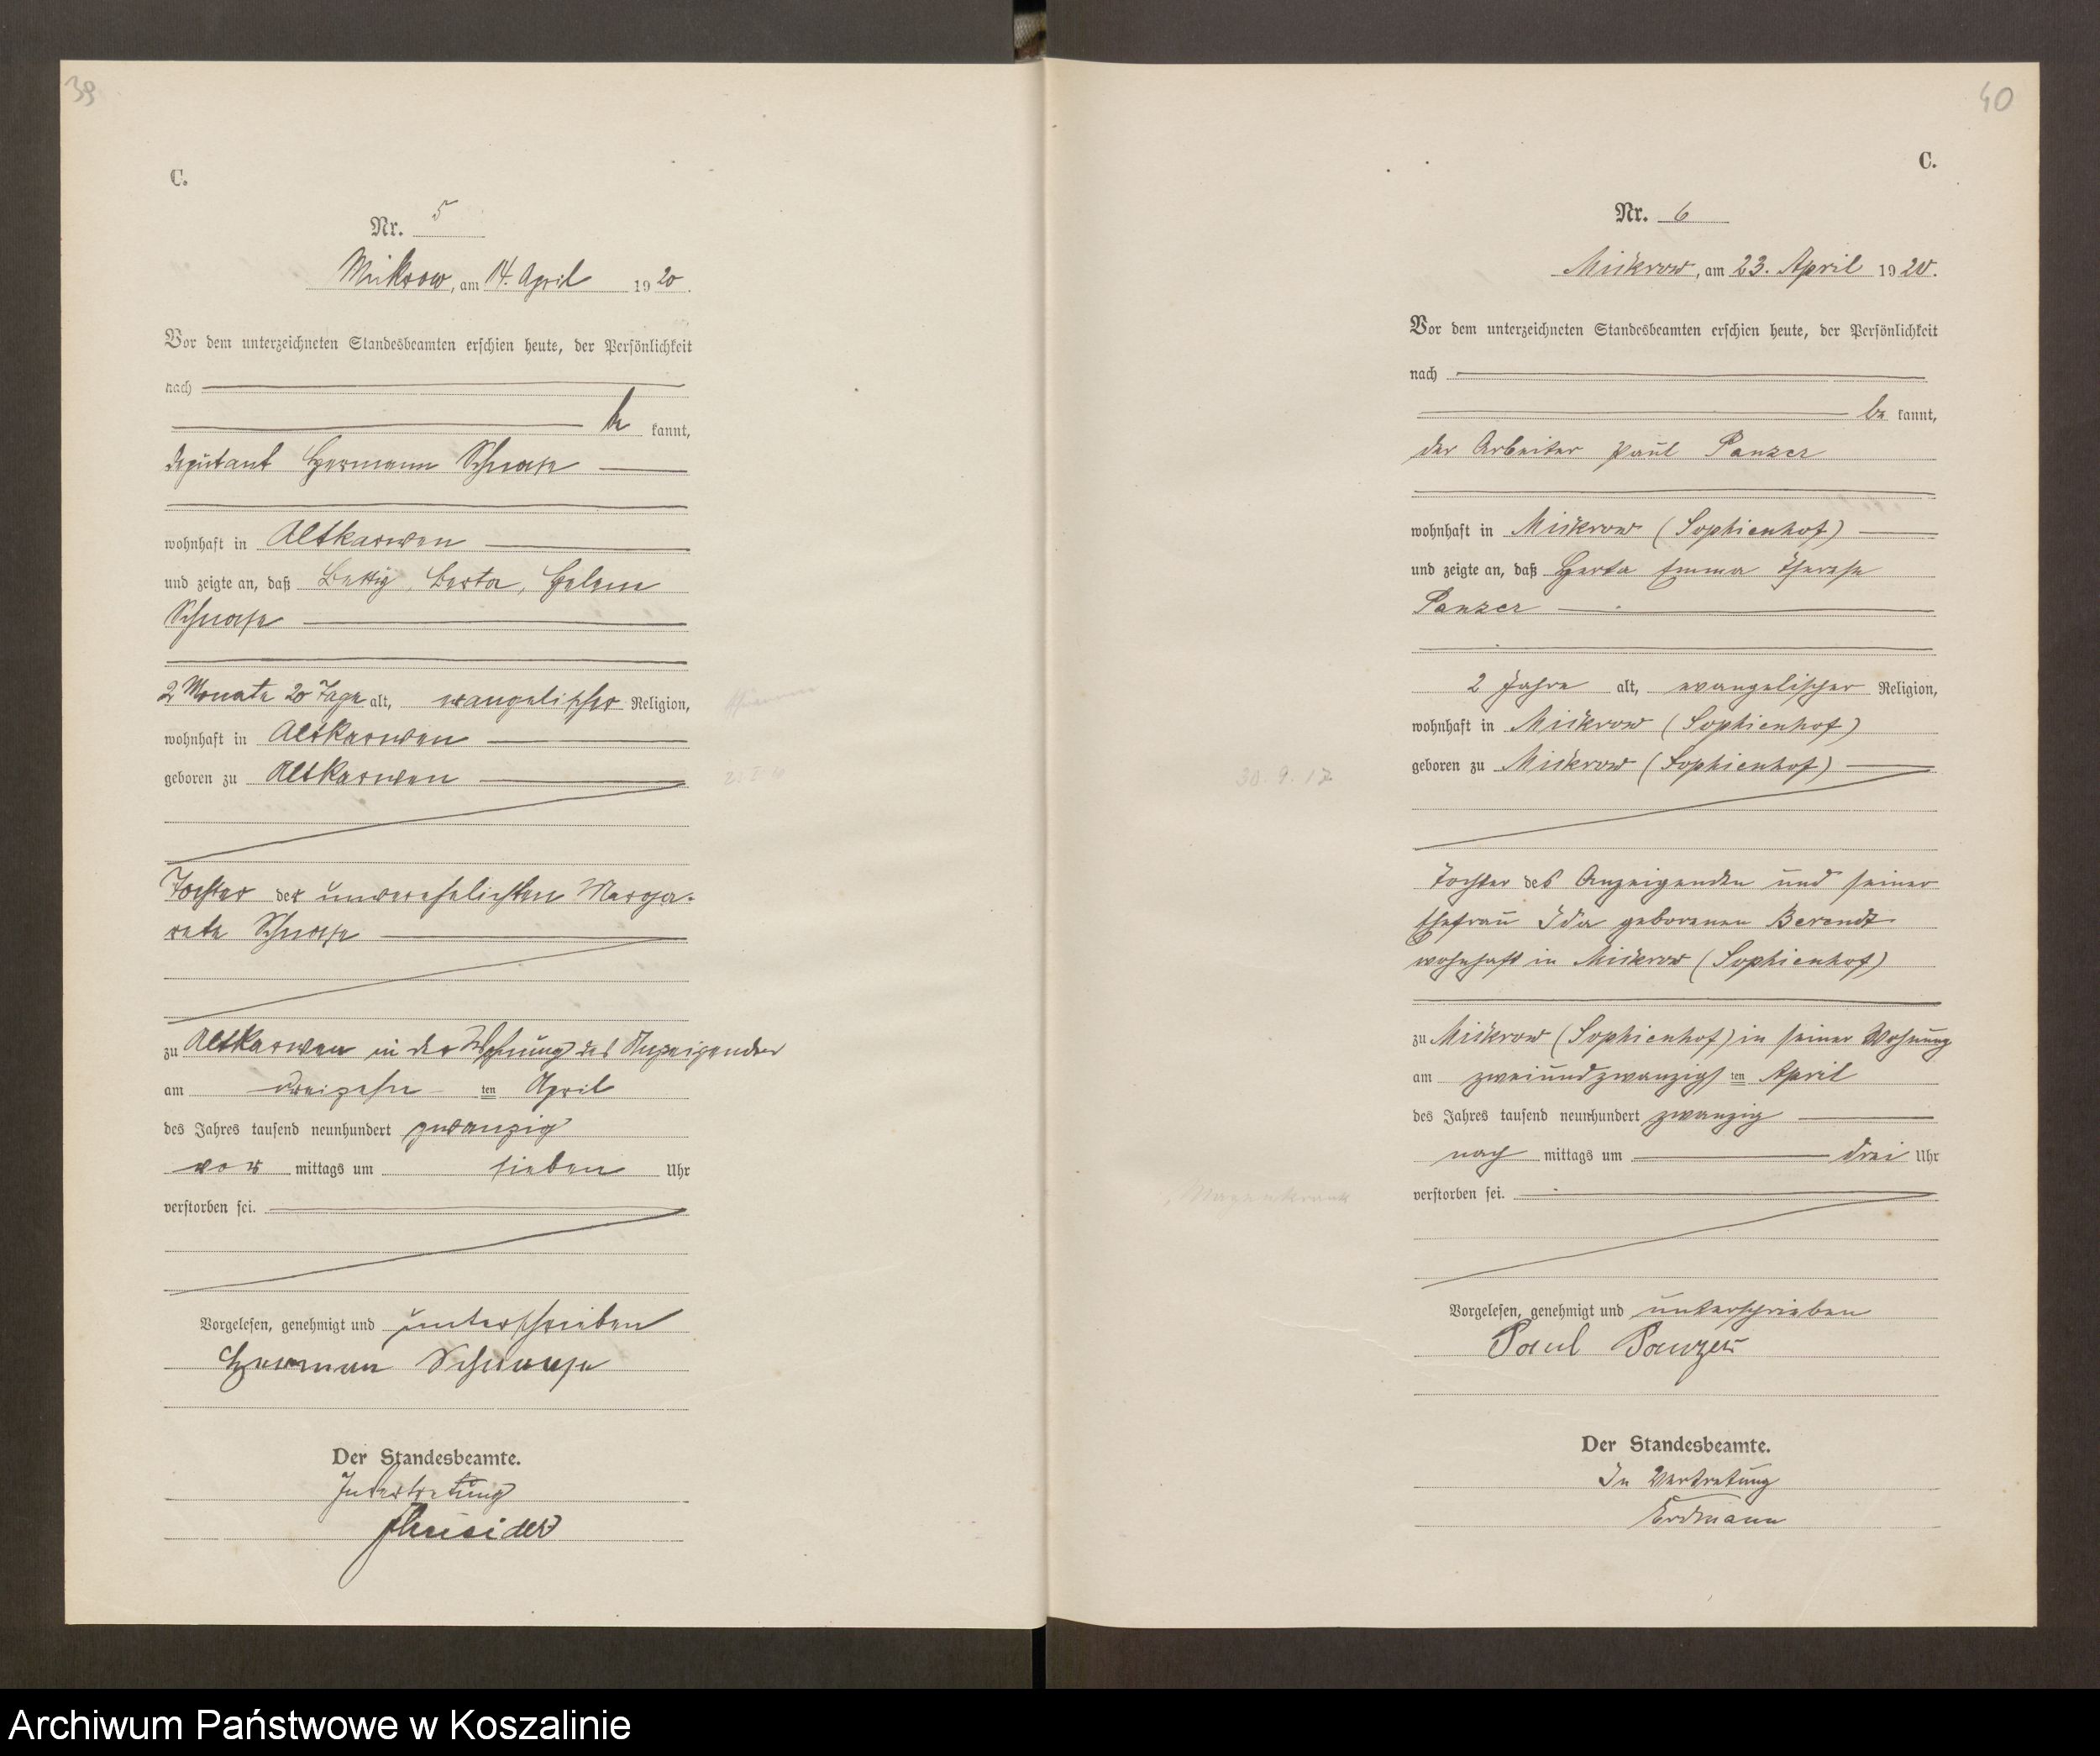 39
C.
Nr. 5
Mickrow, am 14. April 1920.
Vor dem unterzeichneten Standesbeamten erschien heute, der Persönlichkeit
nach
be kannt,
Deputant Hermann Schnase
wohnhaft in Altkarwen
und zeigte an, daß Berta, Helene
Schnase
2 Monate 20 Tage alt, evangelischer Religion,
wohnhaft in Altkarwen
geboren zu Altkarwen
Tochter der unverehelichten Marga-
rete Schnase
zu Altkarwen in der Wohnung des Anzeigenden
am dreizehn ten April
des Jahres tausend neunhundert zwanzig
vor mittags um sieben Uhr
verstorben sei.
Vorgelesen, genehmigt und unterschrieben
Herman Schnase
Der Standesbeamte.
In Vertretung
40
C.
Nr. 6
Mickrow, am 23. April 1920.
Vor dem unterzeichneten Standesbeamten erschien heute, der Persönlichkeit
nach
be kannt,
der Arbeiter Paul Panzer
wohnhaft in Mickrow (Sophienhof)
und zeigte an, daß Herta Emma Therese
Panzer
2 Jahre alt, evangelischer Religion,
wohnhaft in Mickrow (Sophienhof)
geboren zu Mickrow (Sophienhof)
30. 9. 17
Tochter des Anzeigenden und seiner
Ehefrau Ida geborenen Berendt
wohnhaft in Mickrow (Sophienhof)
zu Mickrow (Sophienhof) in seiner Wohnung
am zweiundzwanzigsten April
des Jahres tausend neunhundert zwanzig
nach mittags um drei Uhr
verstorben sei.
Magenkrank
Vorgelesen, genehmigt und unterschrieben
Paul Panzer
Der Standesbeamte.
In Vertretung
Erdmann
Archiwum Państwowe w Koszalinie